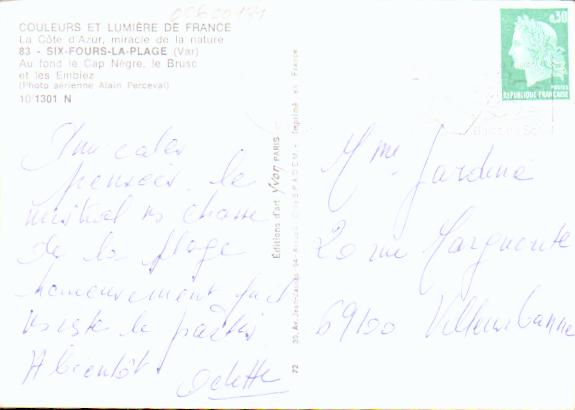 COULEURS ET LUMIÈRE DE FRANCE
La Côte d'Azur, miracle de la nature
83 - SIX-FOURS-LA-PLAGE (Var)
Au fond le Cap Nègre, le Brusc
et les Embiez
(Photo aérienne Alain Perceval)
10/1301 N
Amicales
pensées. le
mistral ns chasse
de la plage
heureusement qu'il
ns reste le pastis
A bientôt. Odette
Editions d'art Yvon PARIS
30, Av. Jean-Jaurès 94 Arcueil - Imprimé en France
72
0,30
POSTES
REPUBLIQUE FRANÇAISE
Mme Jardine
20 rue Marguerite
69100 Villeurbanne